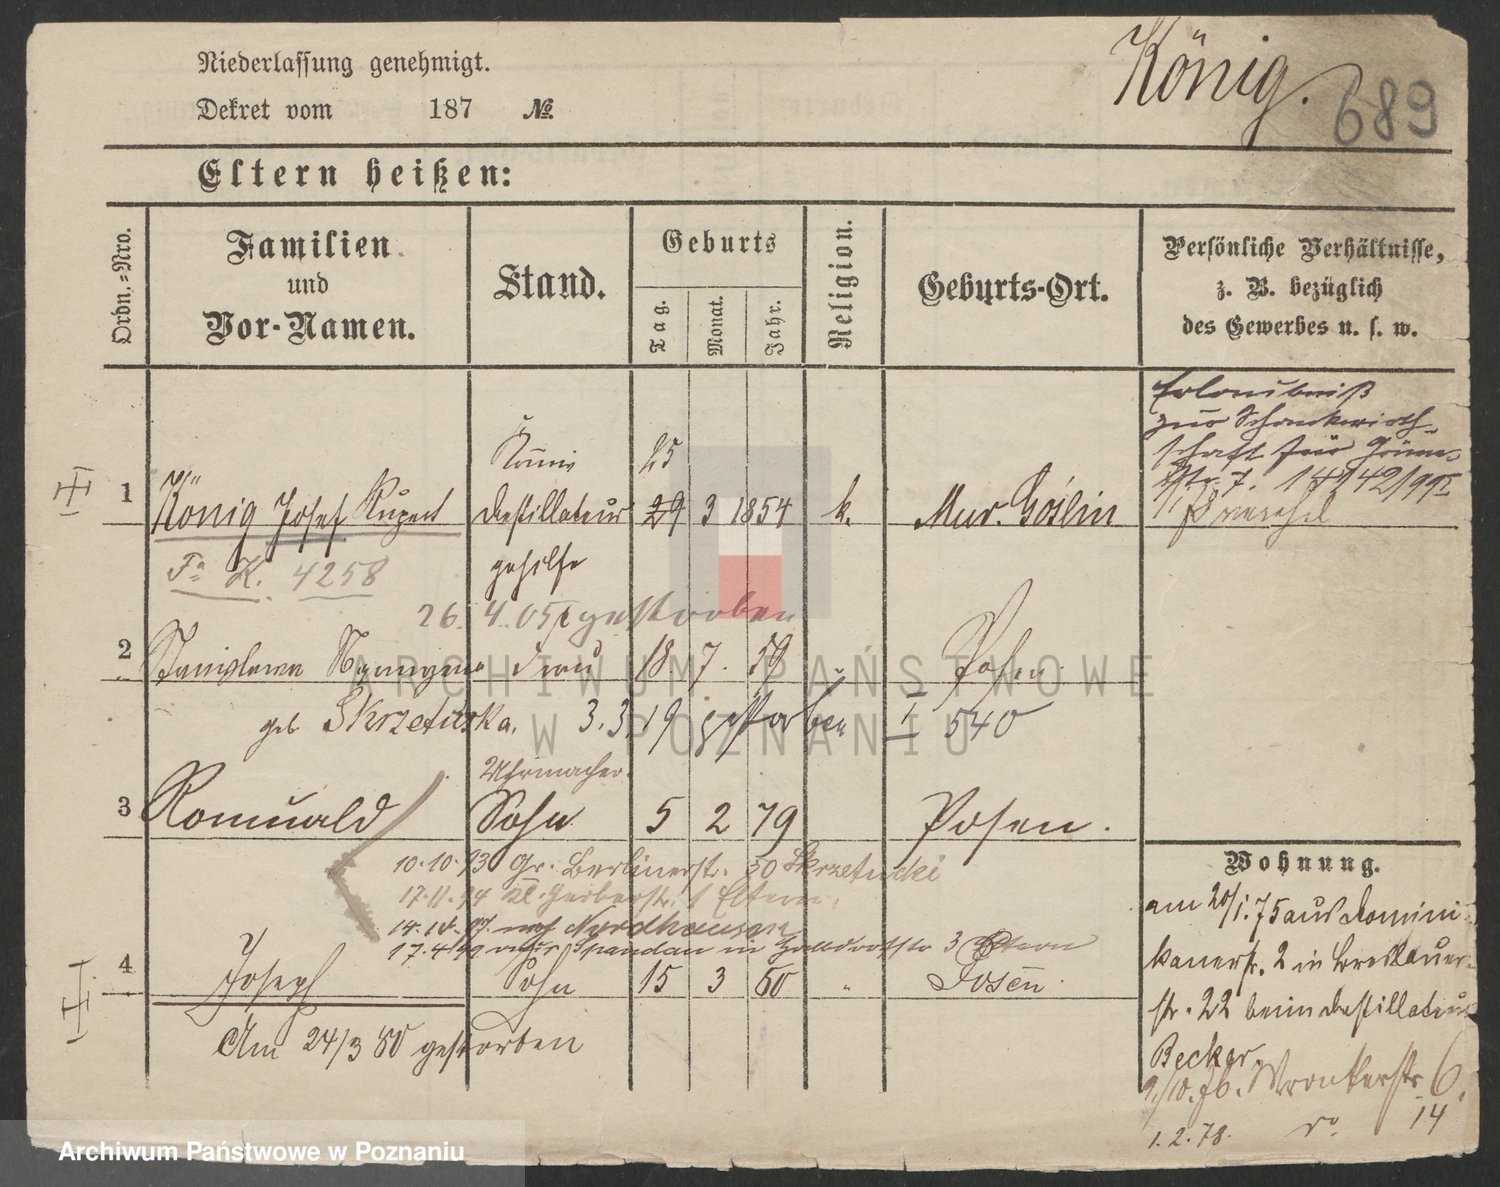 Niederlassung genehmigt.
König.
689
Dekret vom 187 №
Eltern heißen:
Ordn.-Nro.
Familien und Vor-Namen.
Stand.
Geburts
Tag.
Monat.
Jahr.
Religion.
Geburts-Ort.
Persönliche Verhältnisse, z. B. bezüglich des Gewerbes u. s. w.
Erlaubniß
zur Schankwirth-
schaft für
1 König Josef Rupert
Destillateur
gehilfe
25
29 3 1854 k. Mur. Goslin
Fa K. 4258
26. 4. 05 gestorben
2 Stanislawa Frau 18 7. 59 " Posen
geb Skrzetuska. 3.3.19 gestorben I 540
Uhrmacher
3 Romuald Sohn 5 2 79 Posen.
10.10.93 Gr. Berlinerstr. 50 Skrzetucki
17.11.94 Kl. Gerberstr. 1 Eltern.
nach Nordhausen
Spandau in 3 Eltern
4 Joseph Sohn 15 3 80 " Posen
Am 24/3 80 gestorben
Wohnung.
am 20/1.75 aus Domini-
kanerstr. 2 in Breslauer-
str. 22 beim Destillateur
Becker.
9./10.76. Wronkerstr. 6.
1.2.78. ro 14
ARCHIWUM PAŃSTWOWE
W POZNANIU
Archiwum Państwowe w Poznaniu